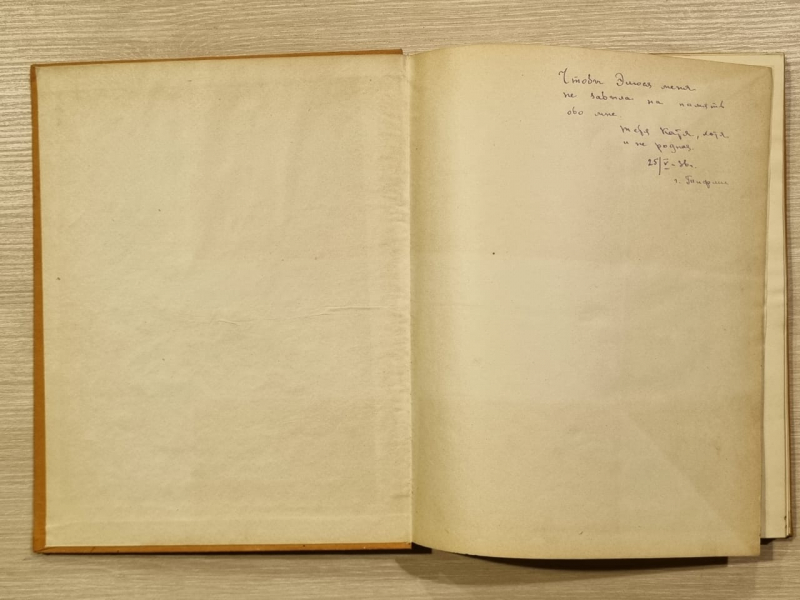 Чтобы Элюся меня
не забыла на память
обо мне
тётя Катя, хотя
и не родная.
25/V-36г.
г.